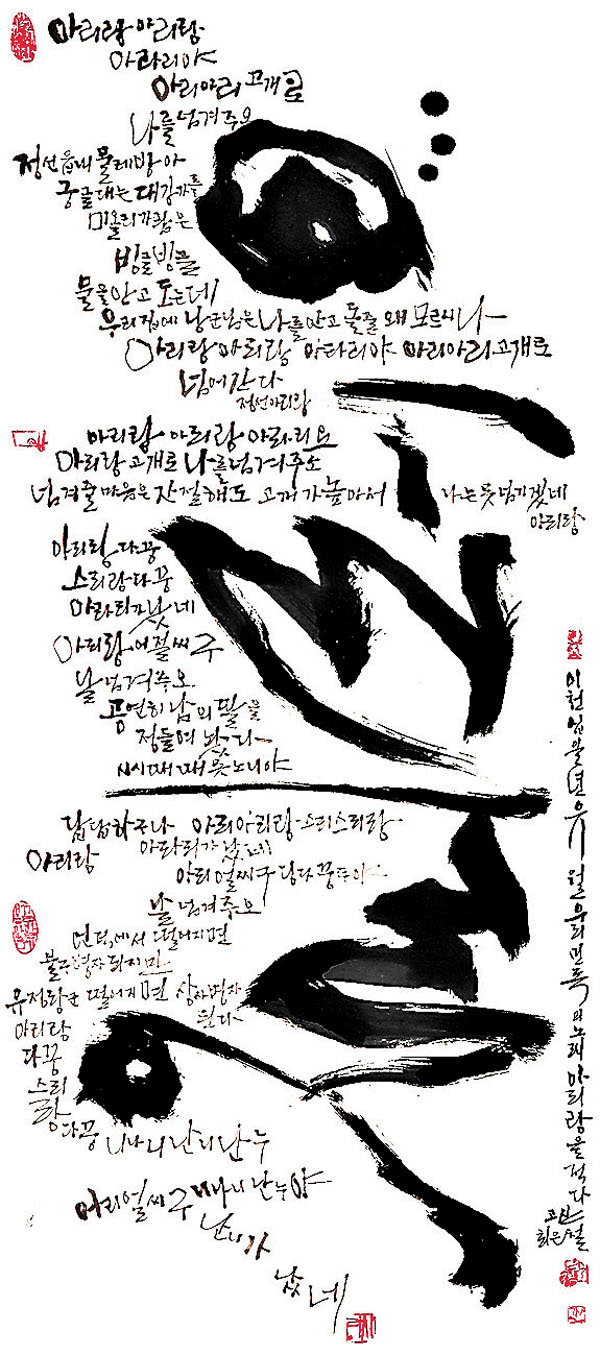 아리랑 아리랑
아라리야
아리아리 고개로
나를 넘겨주오
정선읍내 물레방아
궁글대는
물을 안고 도는데
우리집에 낭군님은 나를 안고 돌줄 왜 모르시나
아리랑 아리랑 아라리야 아리아리 고개로
넘어간다
정선아리랑
아리랑 아리랑 아라리요
아리랑 고개로 나를 넘겨주소
넘겨줄 마음은 간절해도 고개가 높아서 나는 못 넘기겠네
아리랑
아리랑 다꿍
스리랑 다꿍
아라리가 낫네
아리랑 어절씨구
날 넘겨주오
공연히 남의 딸을
정들여 놨다
시시때때 못노니야
답답하구나 아리아리랑 스리스리랑
아리랑
아라리가 났네
날 넘겨주오
언덕에서 떨어지면
떨어지면
된다
아리랑
다꿍
스리
랑
다꿍
니나니 난니난누
어리얼씨구 니나니 난누야
난니가
났네
이천임불년유월 우리민족의 노래 아리랑을 적다
최은철